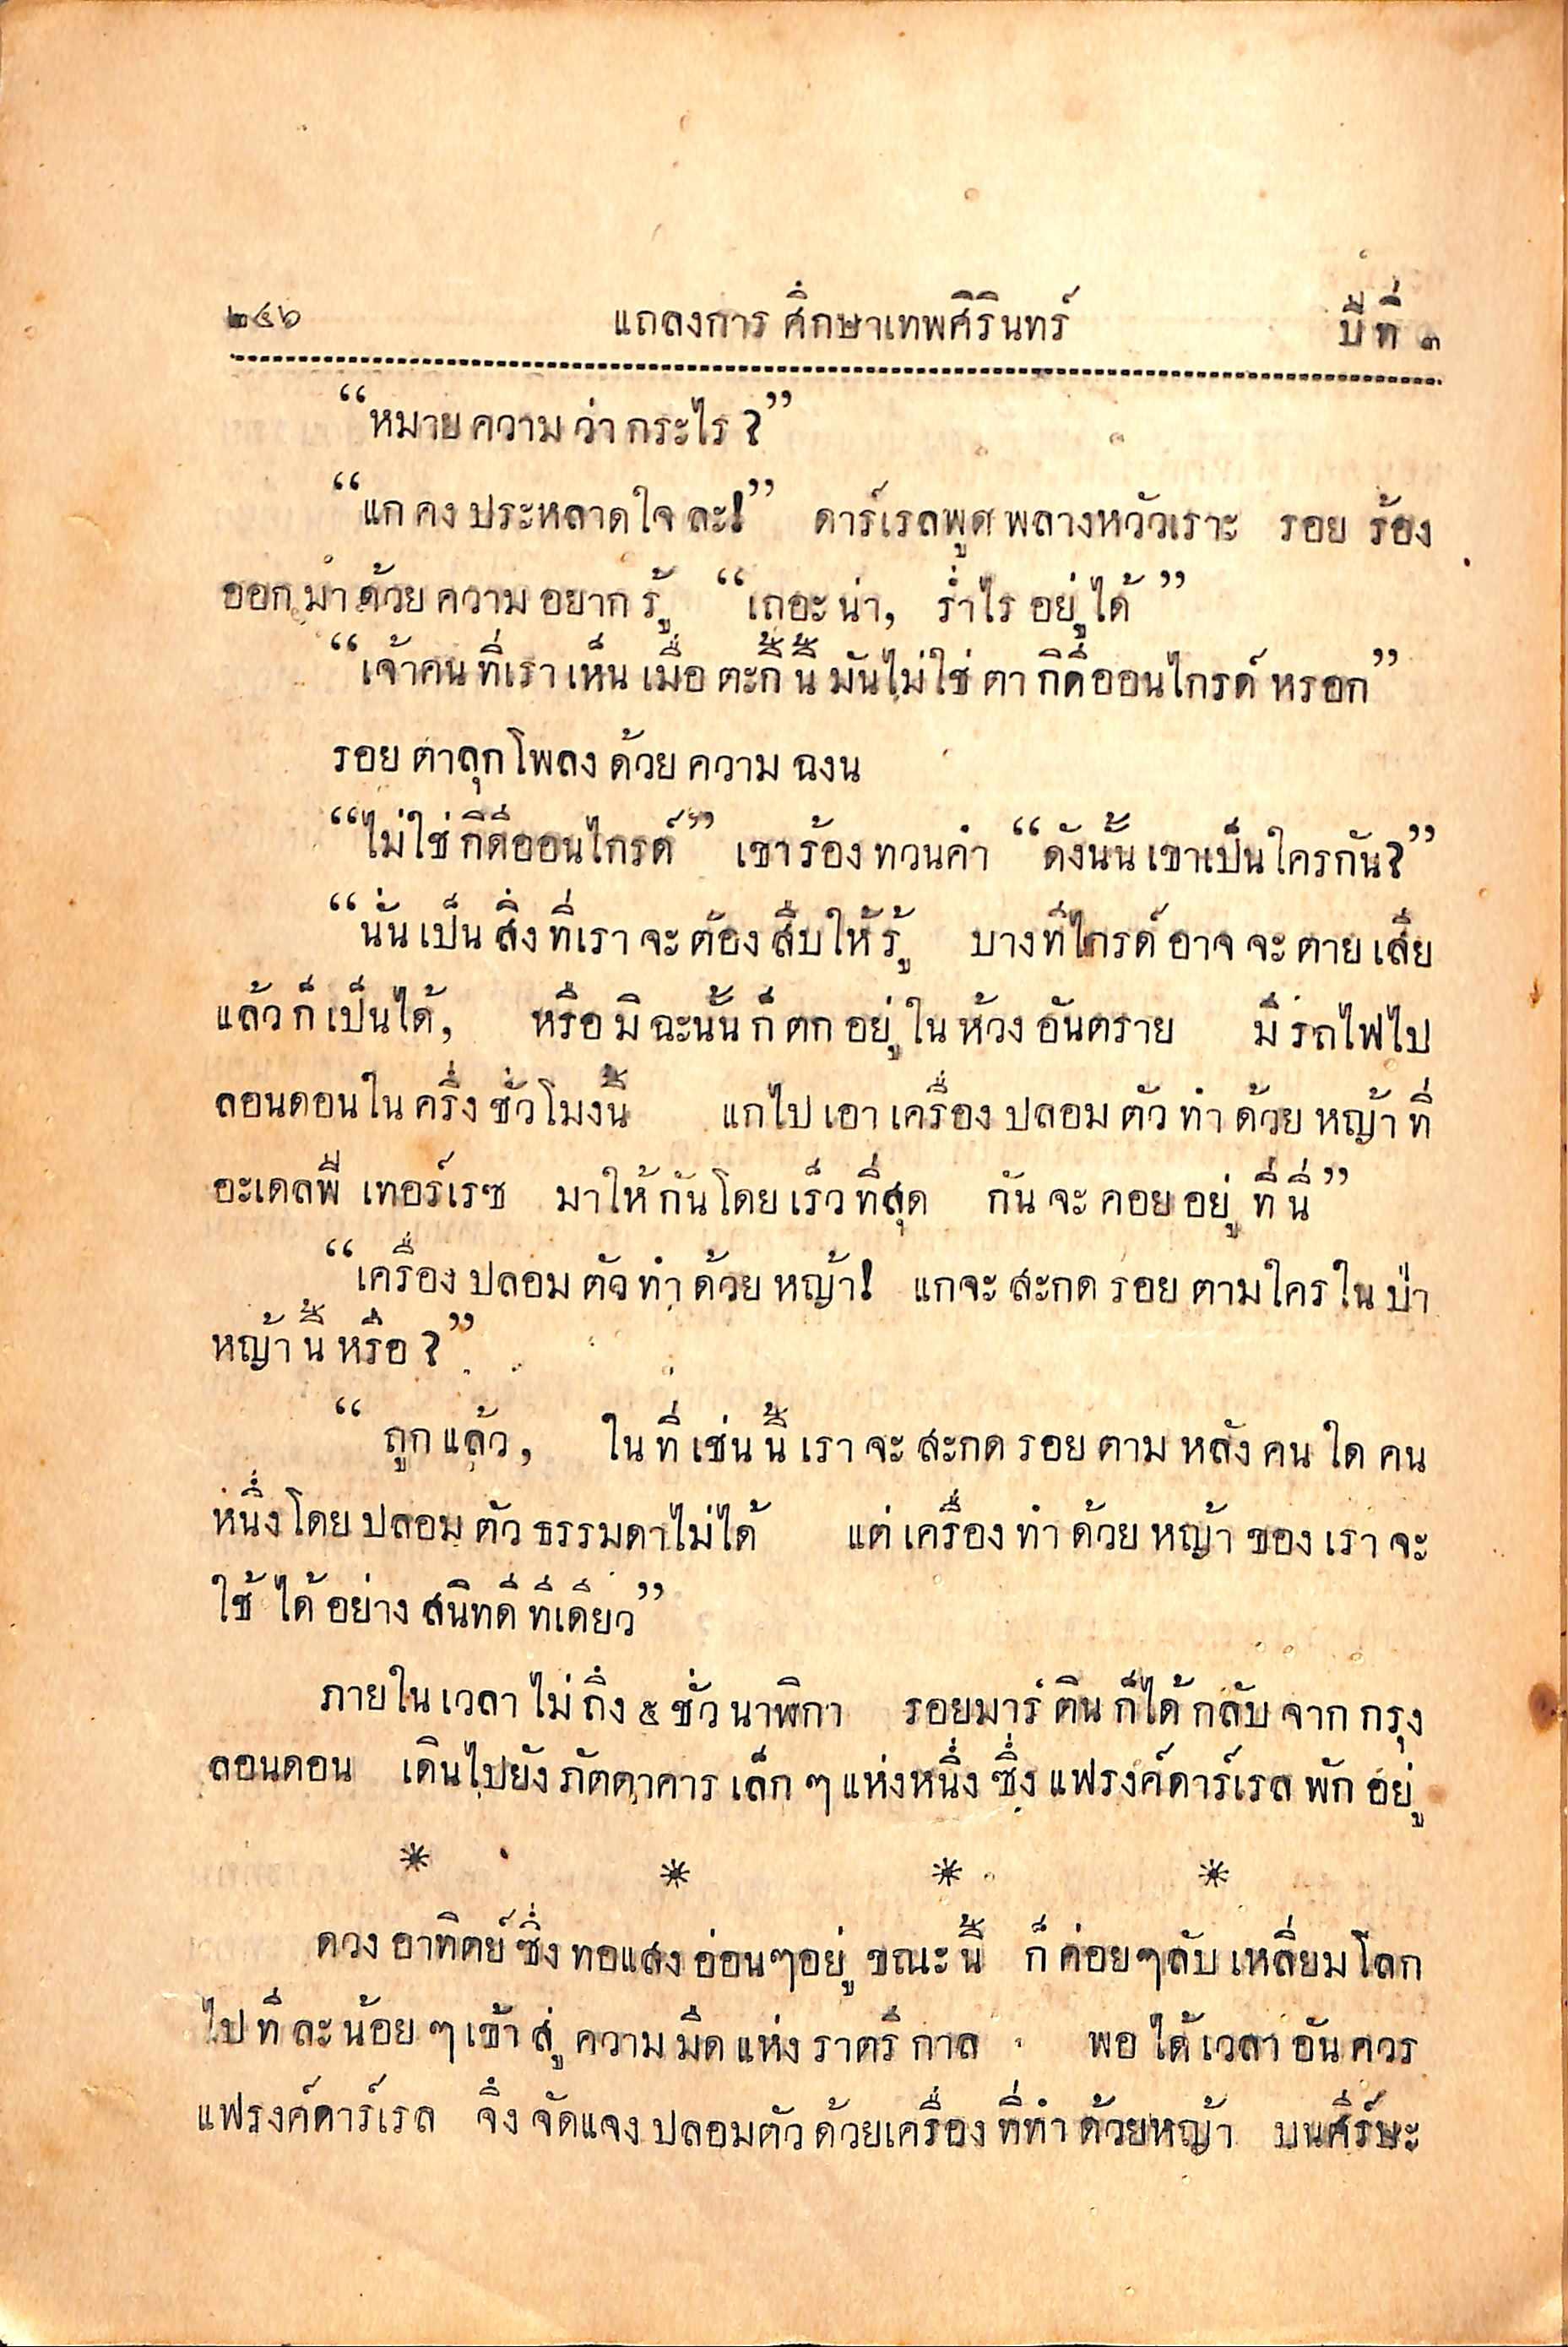 ๒๔๖ แถลงการ ศึกษาเทพศิรินทร์ ปีที่ ๓
“หมาย ความ ว่า กระไร ?”
“แก คง ประหลาดใจ ละ!” ดาร์เรลพูด พลางหวัวเราะ รอย ร้อง
ออก มา ด้วย ความ อยาก รู้ “เถอะ น่า, ร่ำไร อยู่ ได้ ”
“เจ้าคน ที่เรา เห็น เมื่อ ตะกี้ นี้ มันไม่ ใช่ ตา กิดึออนไกรด์ หรอก”
รอย ตาลุกโพลง ด้วย ความ ฉงน
“ไม่ใช่ กิดึออนไกรด์” เขา ร้อง ทวนคำ “ดังนั้น เขาเป็น ใครกัน?”
“นั่น เป็น สิ่ง ที่เรา จะ ต้อง สืบ ให้ รู้ บางทีไกรด์ อาจ จะ ตาย เสีย
แล้ว ก็ เป็นได้, หรือ มิ ฉะนั้น ก็ ตก อยู่ ใน ห้วง อันตราย มี รถไฟไป
ลอนดอน ใน ครึ่ง ชั่วโมงนี้ แกไป เอา เครื่อง ปลอม ตัว ทำ ด้วย หญ้า ที่
อะเดลพี เทอร์เรซ มาให้ กันโดย เร็ว ที่สุด กัน จะ คอย อยู่ ที่ นี่”
“เครื่อง ปลอม ตัว ทำ ด้วย หญ้า! แกจะ สะกด รอย ตาม ใคร ใน ป่า
หญ้า นี้ หรือ ?”
“ ถูก แล้ว, ใน ที่ เช่น นี้ เรา จะ สะกด รอย ตาม หลัง คน ใด คน
หนึ่ง โดย ปลอม ตัว ธรรมดาไม่ได้ แต่ เครื่อง ทำ ด้วย หญ้า ของ เรา จะ
ใช้ ได้ อย่าง สนิทดี ทีเดียว”
ภายใน เวลา ไม่ ถึง ๕ ชั่ว นาฬิกา รอยมาร์ ติน ก็ได้ กลับ จาก กรุง
ลอนดอน เดินไปยัง ภัตตาคาร เล็ก ๆ แห่งหนึ่ง ซึ่ง แฟรงค์ดาร์เรล พัก อยู่
* * * *
ดวง อาทิตย์ ซึ่ง ทอแสง อ่อนๆอยู่ ขณะ นี้ ก็ ค่อยๆลับ เหลี่ยม โลก
ไป ที ละ น้อย ๆ เข้า สู่ ความ มืด แห่ง ราตรี กาล พอ ได้ เวลา อัน ควร
แฟรงค์ดาร์เรล จึง จัดแจง ปลอมตัว ด้วยเครื่อง ที่ทำ ด้วยหญ้า บนศีร์ษะ